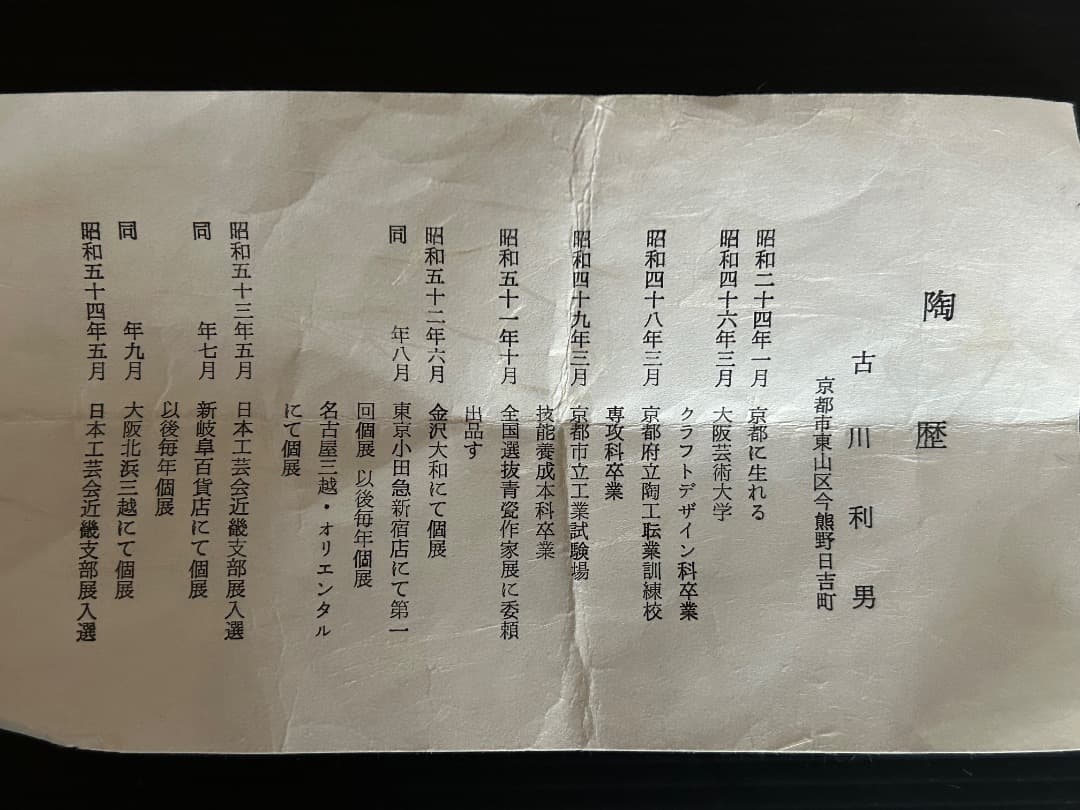 陶歴
古川利男
京都市東山区今熊野日吉町
昭和二十四年一月 京都に生れる
昭和四十六年三月 大阪芸術大学
クラフトデザイン科卒業
昭和四十八年三月 京都府立陶工転業訓練校
専攻科卒業
昭和四十九年三月 京都市立工業試験場
技能養成本科卒業
昭和五十一年十月 全国選抜青瓷作家展に委頼
出品す
昭和五十二年六月 金沢大和にて個展
同 年八月 東京小田急新宿店にて第一
回個展 以後毎年個展
名古屋三越・オリエンタル
にて個展
昭和五十三年五月 日本工芸会近畿支部展入選
同 年七月 新岐阜百貨店にて個展
以後毎年個展
同 年九月 大阪北浜三越にて個展
昭和五十四年五月 日本工芸会近畿支部展入選